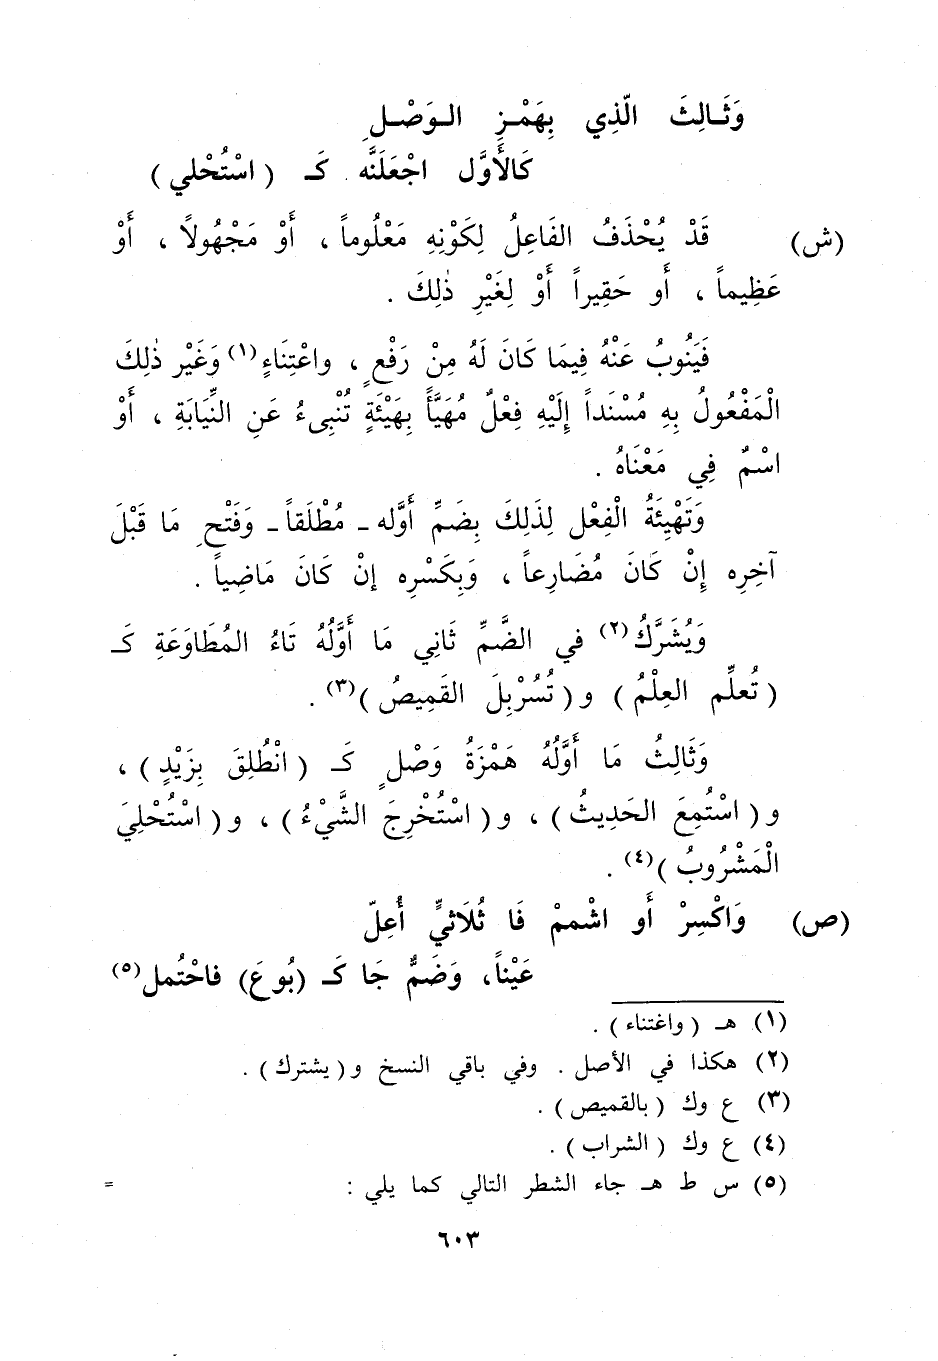 وَثَـالِثَ الّذِي بِهَمْـزِ الـوَصْـلِ
كَالأَوَّل اجْعَلَنَّه كَـ ( اسْتُحْلي )
(ش) قَدْ يُحْذَفُ الفَاعِلُ لِكَوْنِهِ مَعْلُوماً ، أَوْ مَجْهُولاً ، أَوْ
عَظِيماً ، أَو حَقِيراً أَوْ لِغَيْرِ ذٰلِكَ .
فَيَنُوبُ عَنْهُ فِيمَا كَانَ لَهُ مِنْ رَفْعٍ ، واعْتِنَاءٍ(١) وَغَيْر ذٰلِكَ
الْمَفْعُولُ بِهِ مُسْنَداً إِلَيْهِ فِعْلٌ مُهَيَّأً بِهَيْئَةٍ تُنْبِىءُ عَنِ النِّيَابَةِ ، أَوْ
اسْمٌ فِي مَعْنَاهُ .
وَتَهْيِئَةُ الْفِعْل لِذَلِكَ بِضَمِّ أَوَّله ـ مُطْلَقاً ـ وَفَتْحِ مَا قَبْلَ
آخِرِه إِنْ كَانَ مُضَارِعاً ، وَبِكَسْرِه إنْ كَانَ مَاضِياً .
وَيُشَرَّكُ(٢) في الضَّمِّ ثَانِي مَا أَوَّلُهُ تَاءُ المُطَاوَعَةِ كَـ
( تُعلِّم العِلْمُ ) و ( تُسُرْبِلَ القَمِيصُ )(٣) .
وَثَالِثُ مَا أَوَّلُهُ هَمْزَةُ وَصْلٍ كَـ ( انْطُلِقَ بِزَيْدٍ ) ،
و ( اسْتُمِعَ الحَدِيثُ ) ، و ( اسْتُخْرِجَ الشَّيْءُ ) ، و ( اسْتُحْلِيَ
الْمَشْرُوبُ )(٤) .
(ص) وَاكْسِرْ أَو اشْممْ فَا ثُلَاثيٍّ أُعِلّ
عَيْناً، وَضَمٌّ جَا كَـ (بُوعَ) فاحْتُمل(٥)
(١) هـ ( واغتناء ) .
(٢) هكذا في الأصل . وفي باقي النسخ و ( يشترك ) .
(٣) ع وك ( بالقميص ) .
(٤) ع وك ( الشراب ) .
(٥) س ط هـ جاء الشطر التالي كما يلي : =
٦٠٣